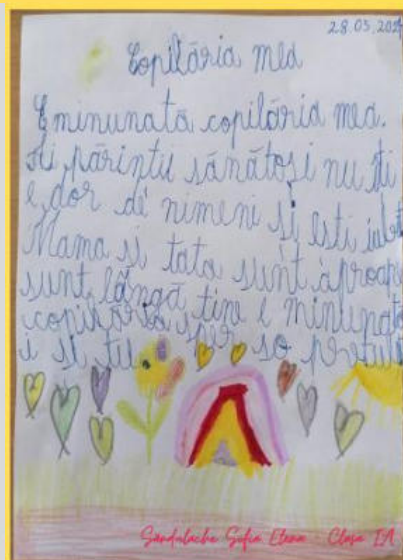 28.05.202
Copilăria mea
E minunată copilăria mea.
Ai părinții sănătoși nu îți
e dor de nimeni și ești iubit
Mama si tata sunt aproape
sunt lângă tine e minunată
copilăria sper so prețui
i si tu
Sandulache Sofia Elena - Clasa IA